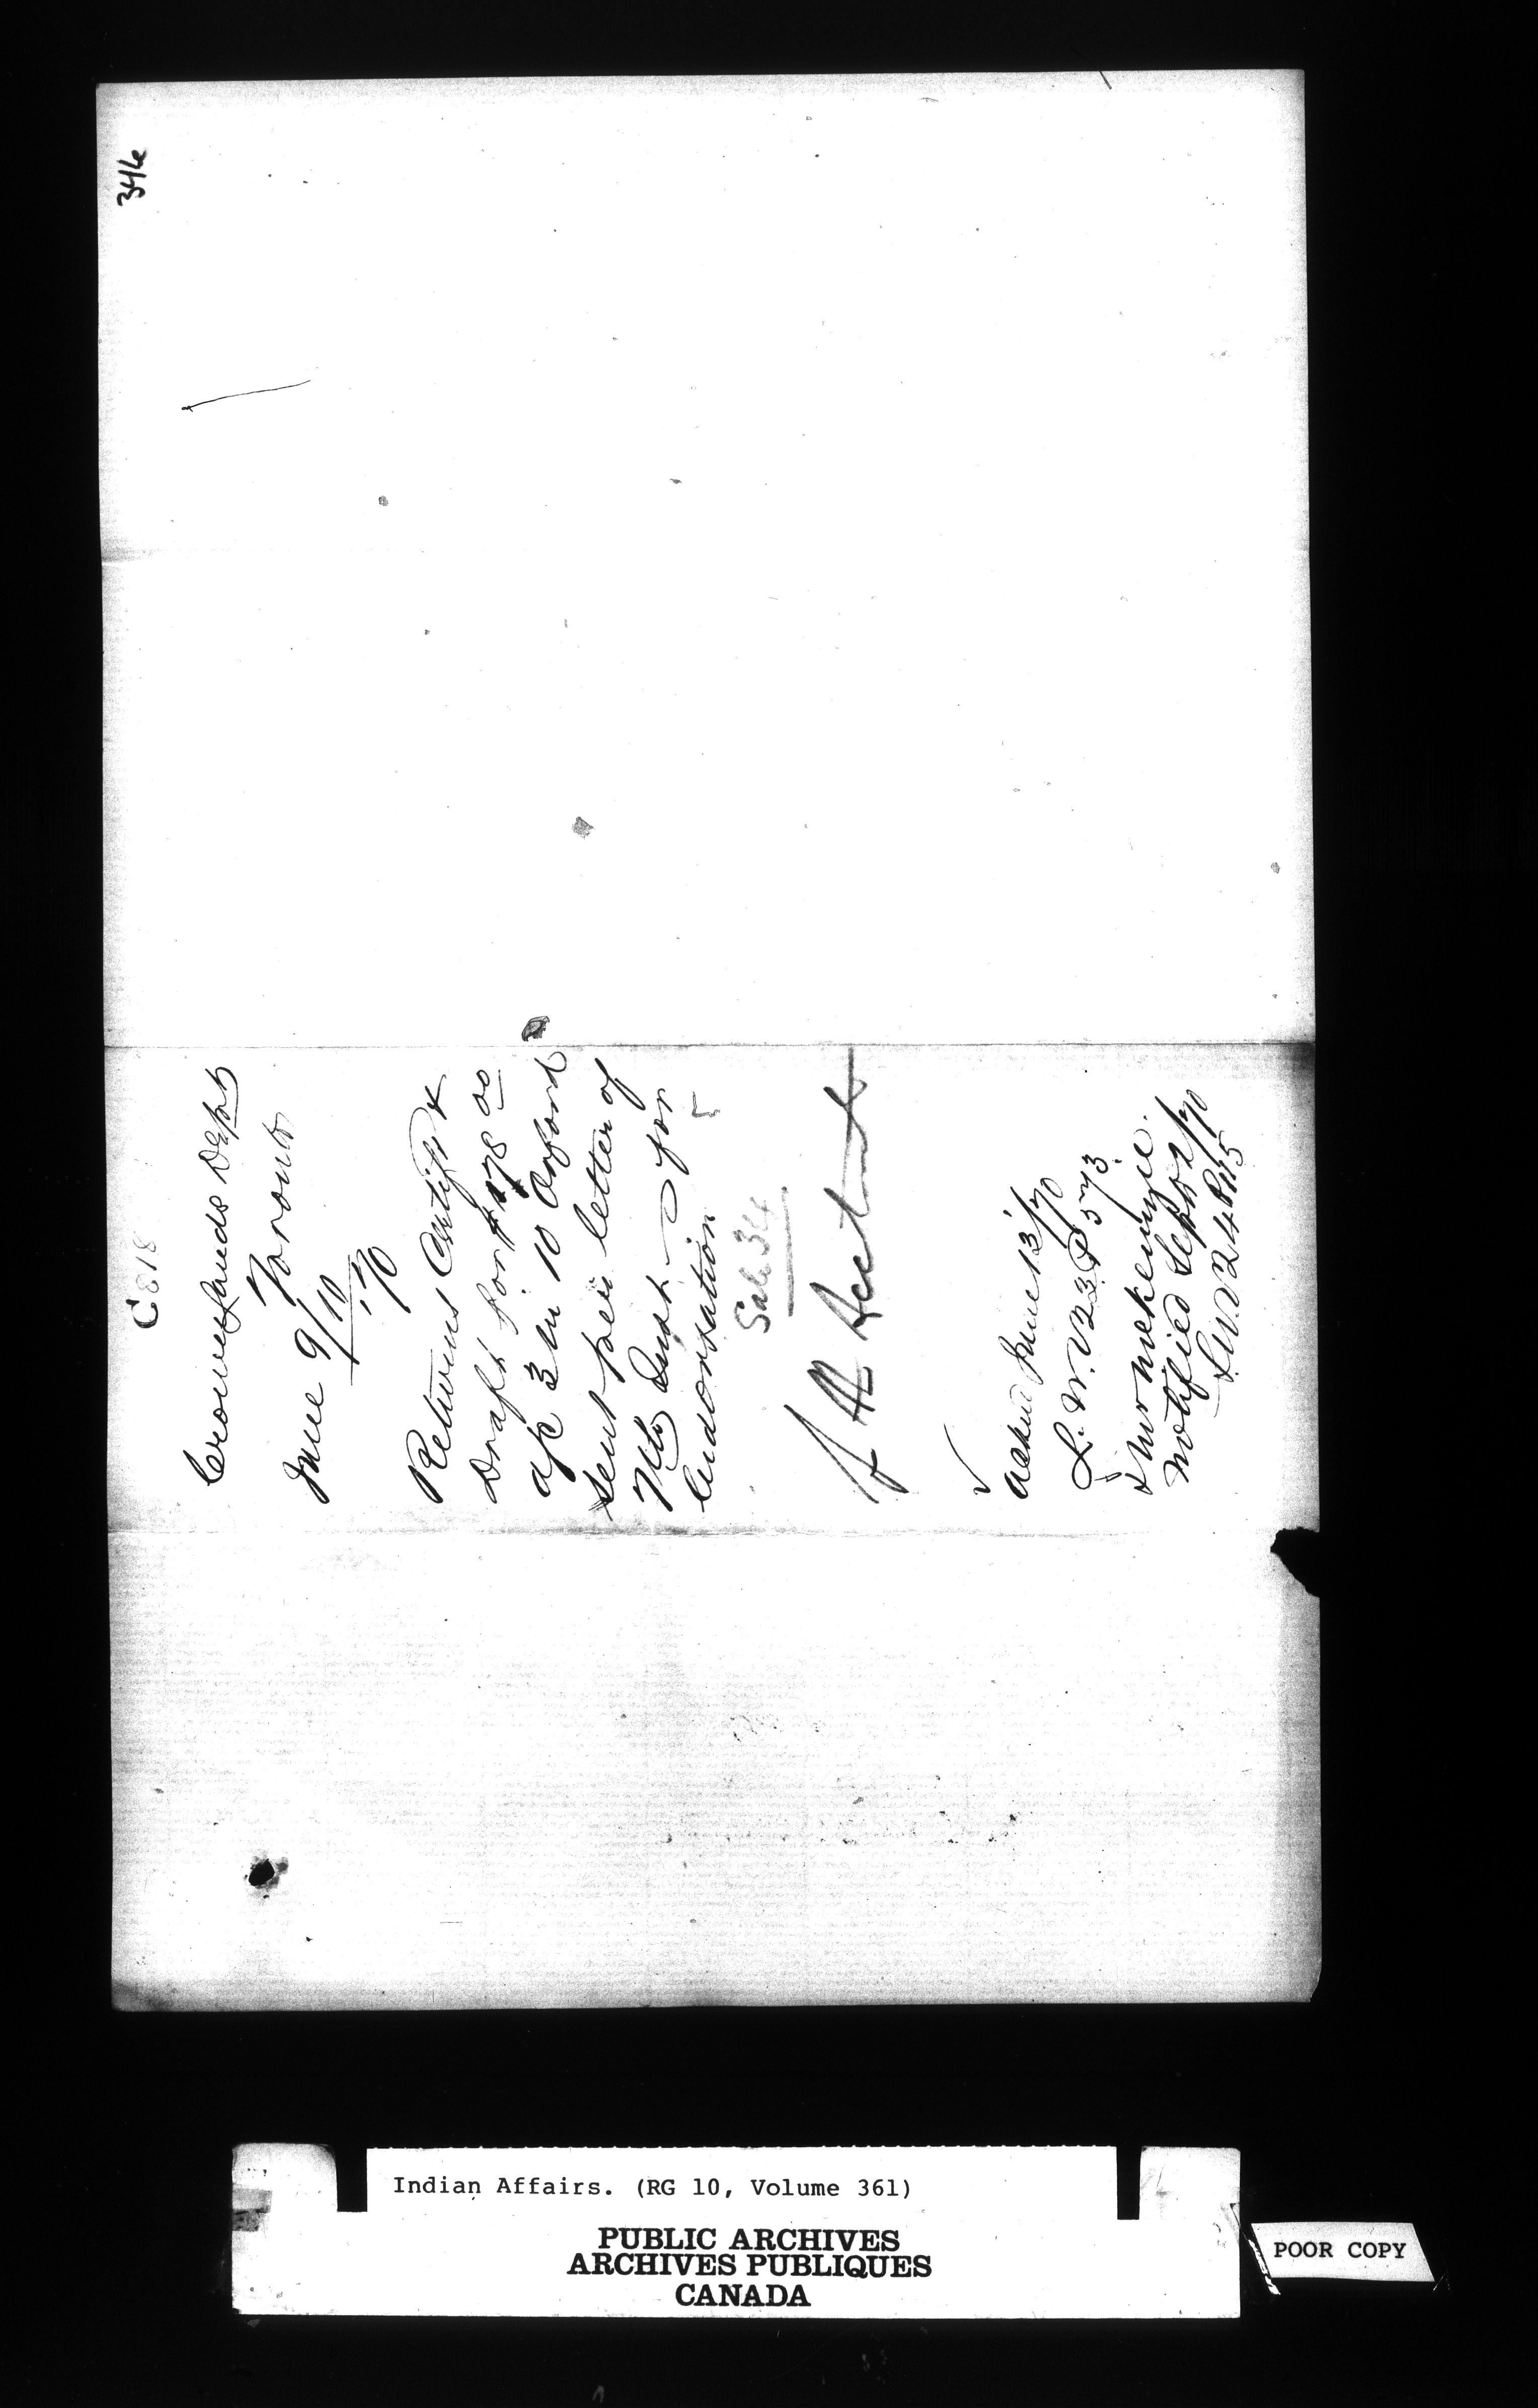 346
C818
Crown Lands Dept
Toronto
June 9/10
'70
Returns Certif &
Draft for $178 00
a/c 3 in 10 Orford
sent per letter of
7th Inst - for
endorsation
Sale 34
f All Acct
Ackd June 13/70
L.W. V23 P 573.
& Mr McKenzie
notified Sept 2/70
L.W. V24 P115
Indian Affairs. (RG 10, Volume 361)
PUBLIC ARCHIVES
ARCHIVES PUBLIQUES
CANADA
POOR COPY